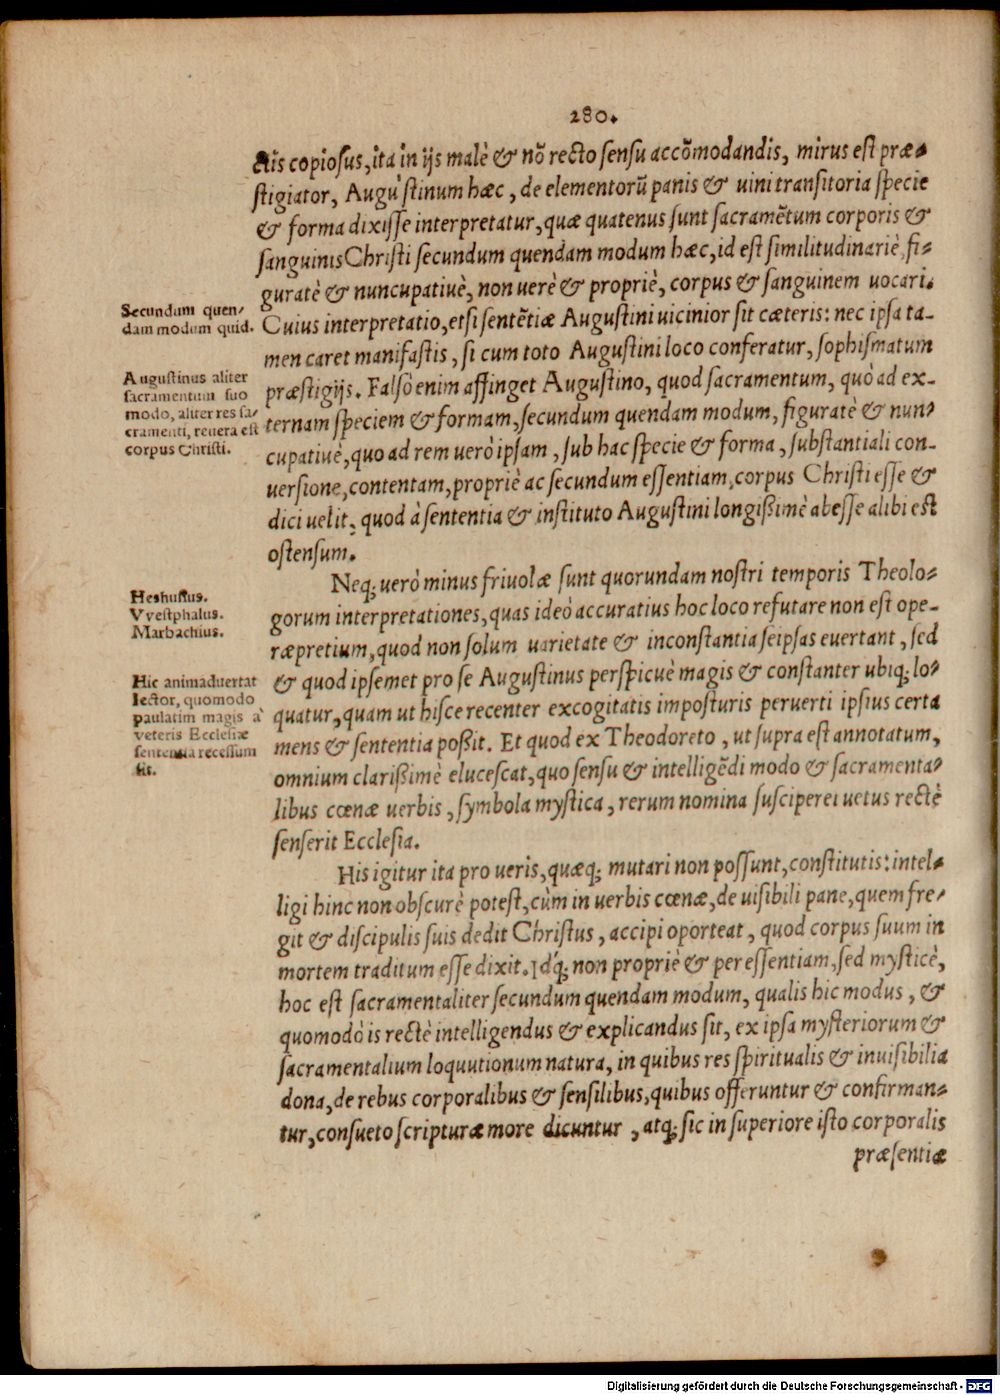 280.
ctis copiosus, ita in ijs malè & nõ recto sensu accõmodandis, mirus est præ-
stigiator, Augustinum hæc, de elementorũ panis & uini transitoria specie
& forma dixisse interpretatur, quæ quatenus sunt sacramẽtum corporis &
sanguinis Christi secundum quendam modum hæc, id est similitudinariè, fi-
guratè & nuncupatiuè, non uerè & propriè, corpus & sanguinem uocari.
Secundum quen-
dam modum quid.
Cuius interpretatio, etsi sentẽtiæ Augustini uicinior sit cæteris: nec ipsa ta-
men caret manifastis, si cum toto Augustini loco conferatur, sophismatum
Augustinus aliter
sacramentum suo
modo, aliter res sa-
cramenti, reuera est
corpus Christi.
præstigijs. Falsò enim affinget Augustino, quod sacramentum, quò ad ex-
ternam speciem & formam, secundum quendam modum, figuratè & nun-
cupatiuè, quo ad rem uerò ipsam, sub hac specie & forma, substantiali con-
uersione, contentam, propriè ac secundum essentiam, corpus Christi esse &
dici uelit, quod à sententia & instituto Augustini longißimè abesse alibi est
ostensum.
Heshusius.
Vvestphalus.
Marbachius.
Neq; uerò minus friuolæ sunt quorundam nostri temporis Theolo-
gorum interpretationes, quas ideò accuratius hoc loco refutare non est ope-
ræpretium, quod non solum uarietate & inconstantia seipsas euertant, sed
Hic animaduertat
lector, quomodo
paulatim magis à
veteris Ecclesiæ
sententia recessum
sit.
& quod ipsemet pro se Augustinus perspicuè magis & constanter ubiq; lo-
quatur, quam ut hisce recenter excogitatis imposturis peruerti ipsius certa
mens & sententia poßit. Et quod ex Theodoreto, ut supra est annotatum,
omnium clarißimè elucescat, quo sensu & intelligẽdi modo & sacramenta-
libus cœnæ uerbis, symbola mystica, rerum nomina susciperei uetus rectè
senserit Ecclesia.
His igitur ita pro ueris, quæq; mutari non possunt, constitutis: intel-
ligi hinc non obscurè potest, cùm in uerbis cœnæ, de uisibili pane, quem fre-
git & discipulis suis dedit Christus, accipi oporteat, quod corpus suum in
mortem traditum esse dixit. Idq́; non propriè & per essentiam, sed mysticè,
hoc est sacramentaliter secundum quendam modum, qualis hic modus, &
quomodò is rectè intelligendus & explicandus sit, ex ipsa mysteriorum &
sacramentalium loquutionum natura, in quibus res spiritualis & inuisibilia
dona, de rebus corporalibus & sensilibus, quibus offeruntur & confirman-
tur, consueto scripturæ more dicuntur, atq; sic in superiore isto corporalis
præsentiæ
Digitalisierung gefördert durch die Deutsche Forschungsgemeinschaft - DFG